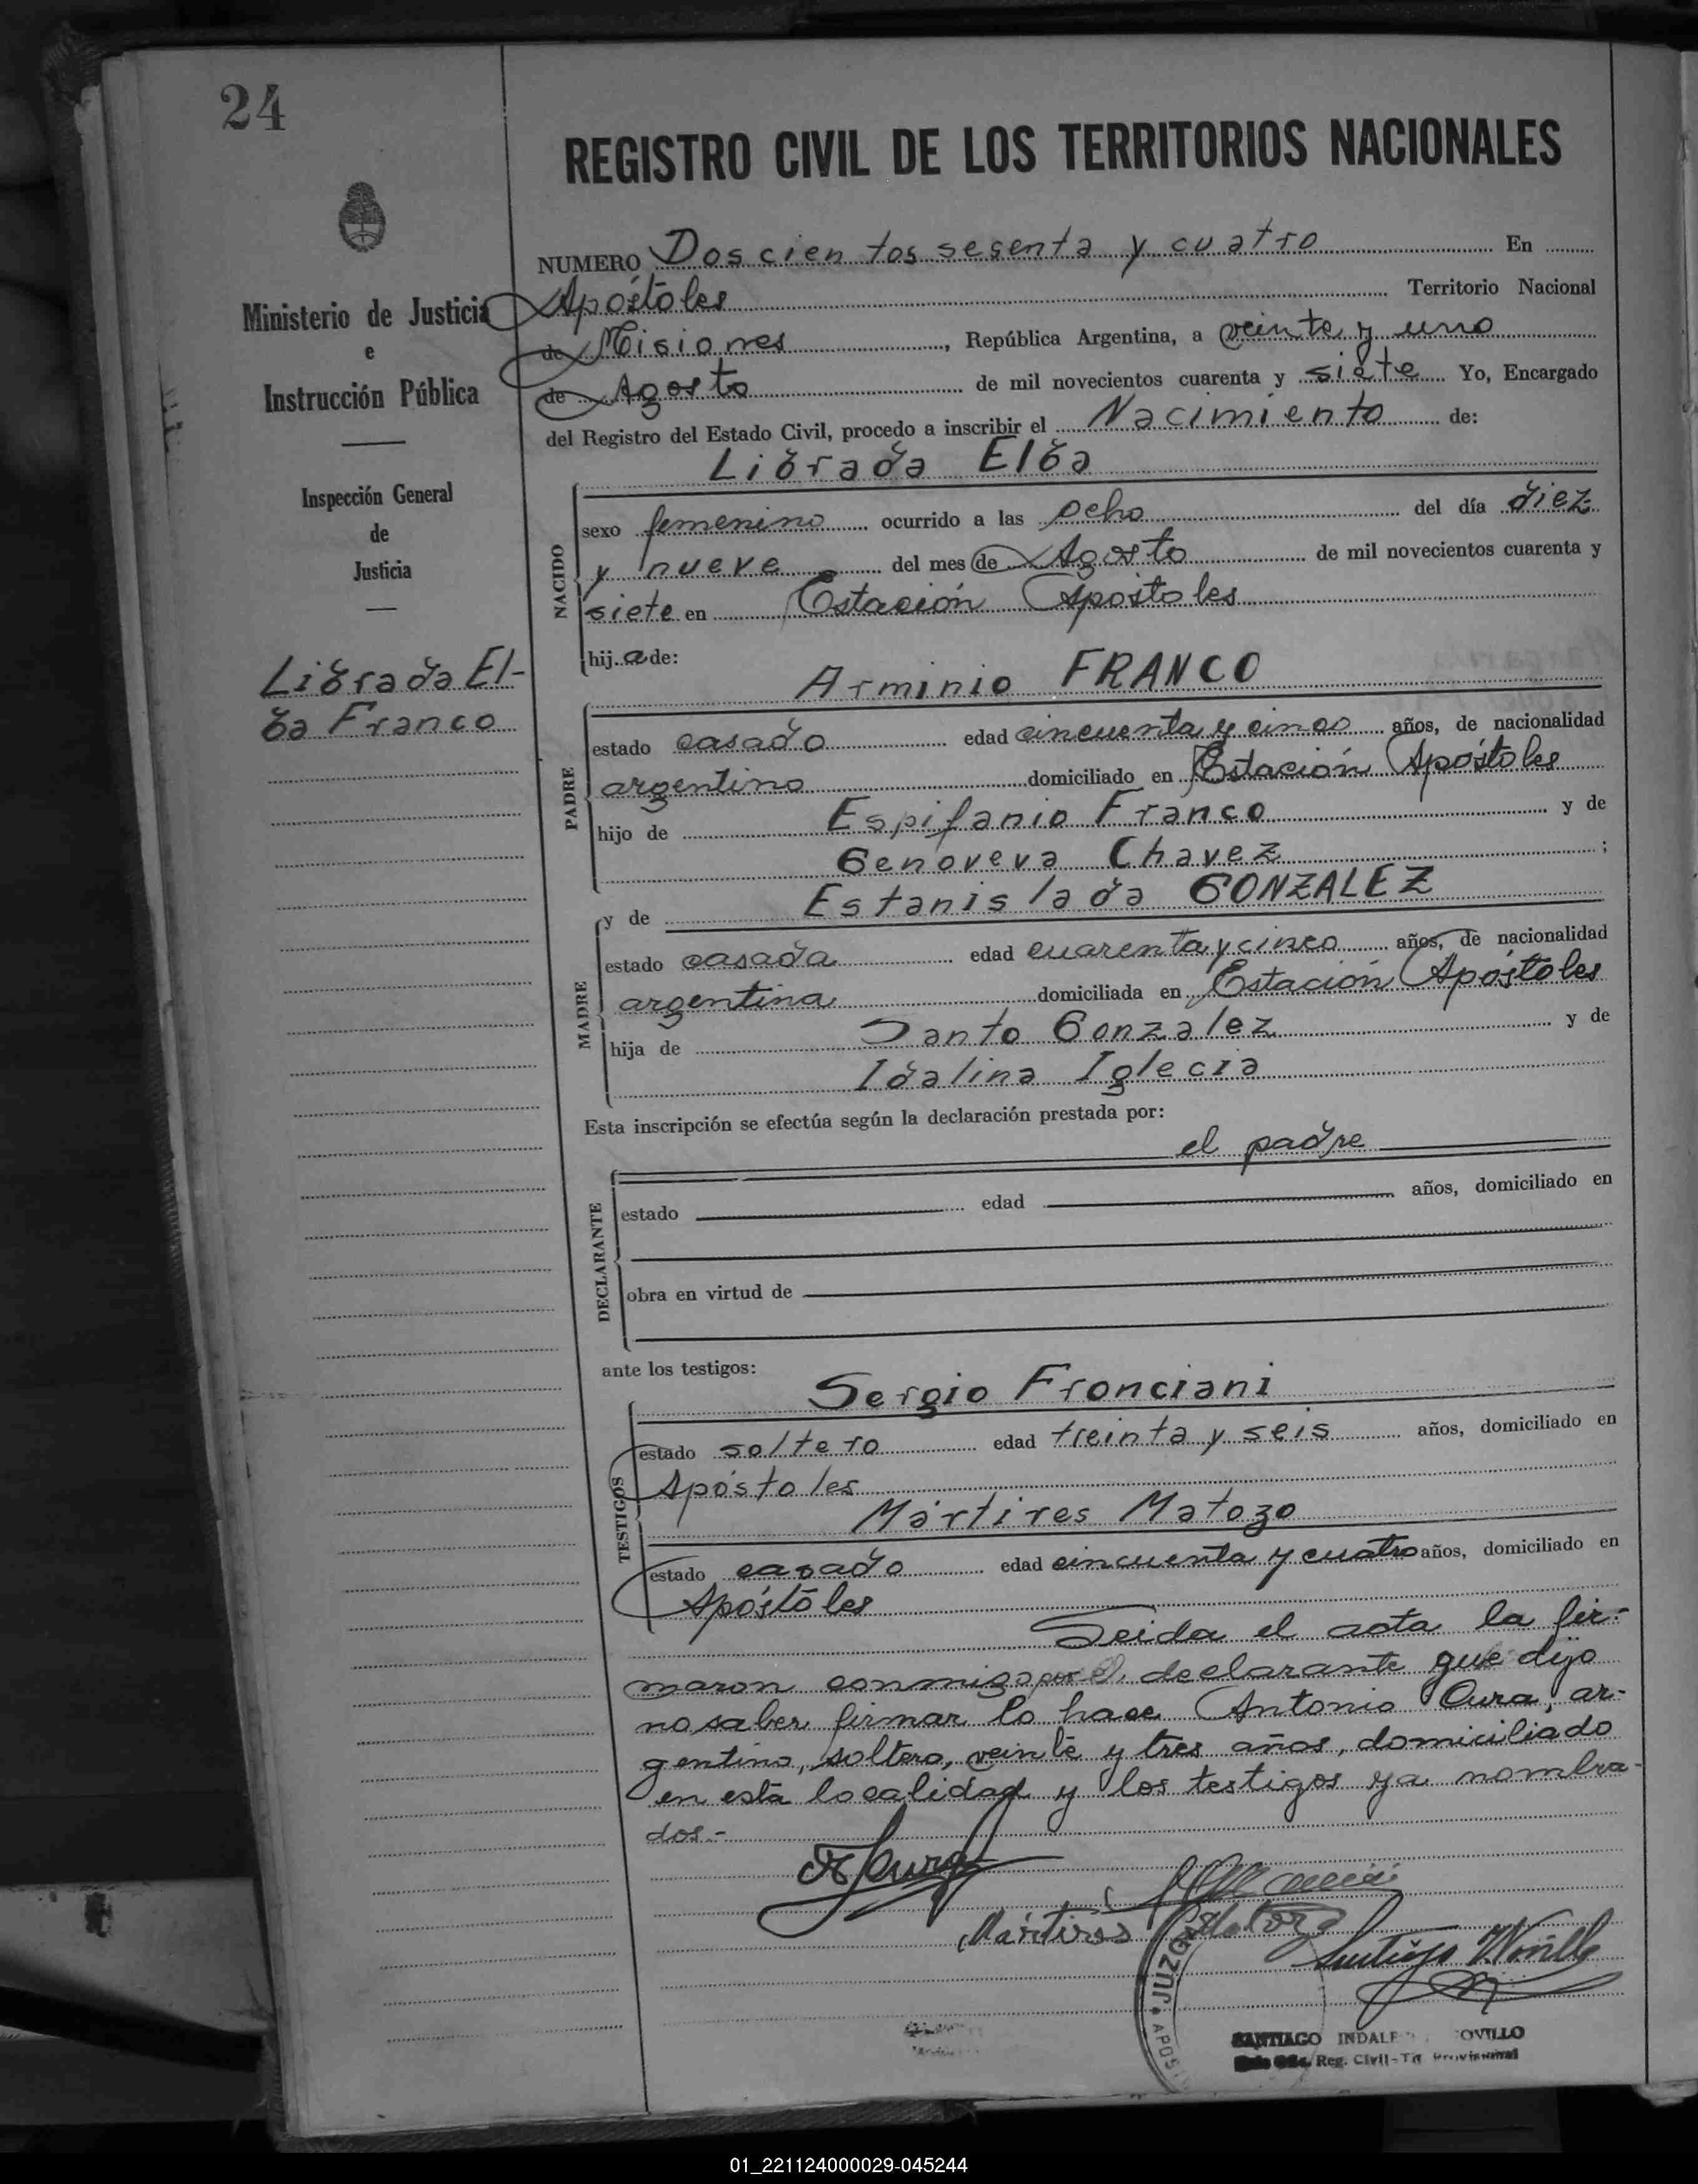 24
REGISTRO CIVIL DE LOS TERRITORIOS NACIONALES
Ministerio de Justicia
e
Instrucción Pública
Inspección General
de
Justicia
Librada El-
ba Franco
NUMERO Doscientos sesenta y cuatro En
Apóstoles Territorio Nacional
de Misiones, República Argentina, a veinte y uno
de Agosto de mil novecientos cuarenta y siete Yo, Encargado
del Registro del Estado Civil, procedo a inscribir el Nacimiento de:
Librada Elba
NACIDO
sexo femenino ocurrido a las ocho del día diez
y nueve del mes de Agosto de mil novecientos cuarenta y
siete en Estación Apóstoles
hij a de:
Arminio FRANCO
PADRE
estado casado edad cincuenta y cinco años, de nacionalidad
argentino domiciliado en Estación Apóstoles
hijo de Espifanio Franco y de
Genoveva Chavez ;
y de Estanislada GONZALEZ
MADRE
estado casada edad cuarenta y cinco años, de nacionalidad
argentina domiciliada en Estación Apóstoles
hija de Santo Gonzalez y de
Idalina Iglecia
Esta inscripción se efectúa según la declaración prestada por:
el padre
DECLARANTE
estado edad años, domiciliado en
obra en virtud de
ante los testigos:
Sergio Fronciani
TESTIGOS
estado soltero edad treinta y seis años, domiciliado en
Apóstoles
Mártires Matozo
estado casado edad cincuenta y cuatro años, domiciliado en
Apóstoles
Leida el acta la fir-
maron conmigo por el declarante que dijo
no saber firmar lo hace Antonio Cura, ar-
gentino, soltero, veinte y tres años, domiciliado
en esta localidad y los testigos ya nombra-
dos.-
Mártires Matozo
JUZG
APOS
SANTIAGO INDALE OVILLO
Reg. Civil-Tit Provisional
01_221124000029-045244